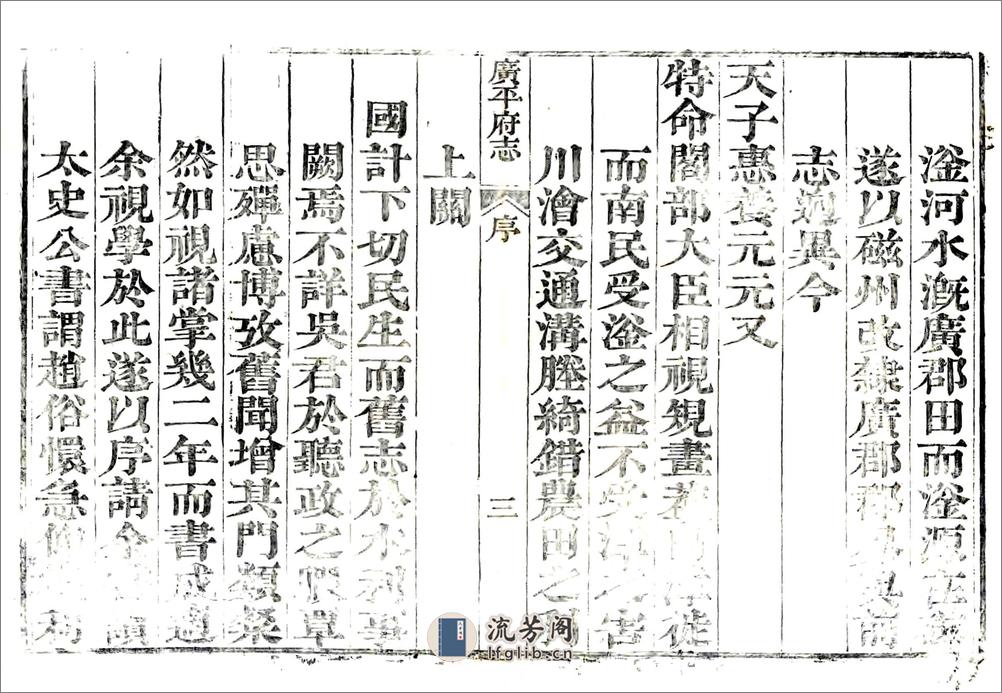 滏河水漑廣郡田而滏源在
遂以磁州改隸廣郡郡
志逈異今
天子惠養元元又
特命閣部大臣相視規畫
而南民受滏之益不受
川澮交通溝塍綺錯農田之利
上關
廣平府志
序
三
國計下切民生而舊志於水利事
闕焉不詳吳君於聽政之暇覃
思殫慮博攷舊聞增其門類粲
然如視諸掌幾二年而書成適
余視學於此遂以序請余
太史公書謂趙俗懁急
流芳阁
lfglib.cn